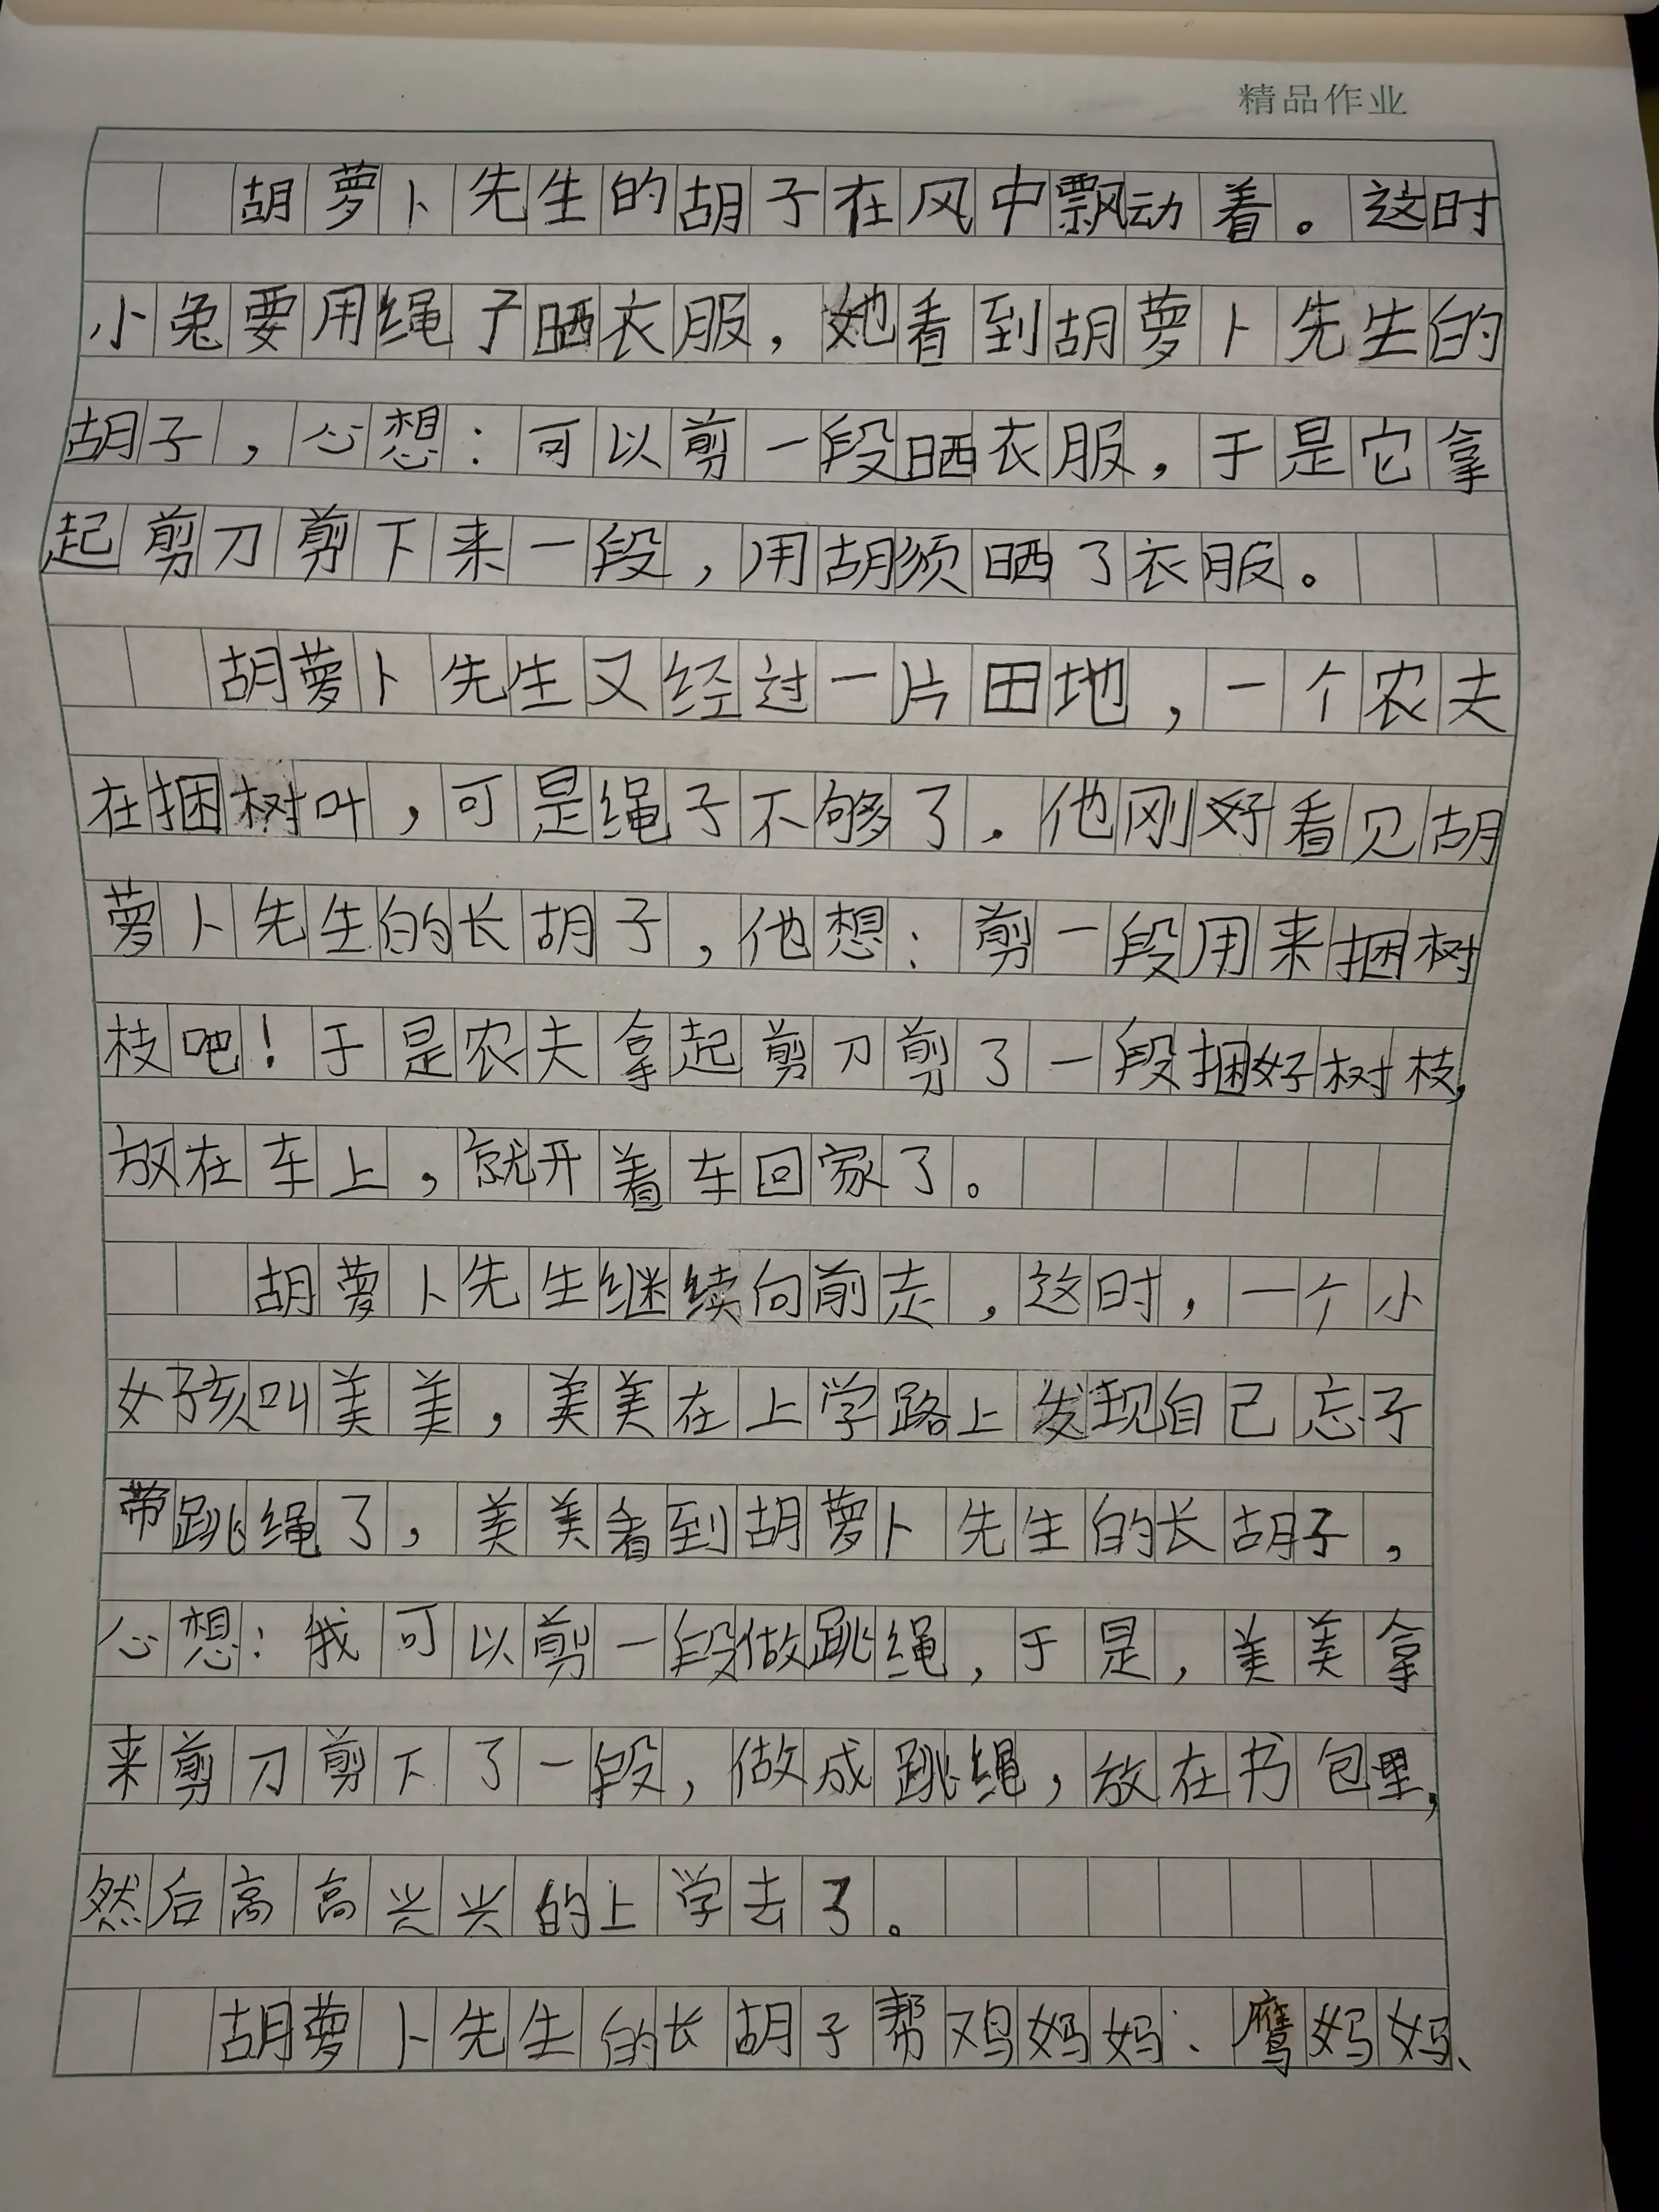 精品作业
胡萝卜先生的胡子在风中飘动着。这时
小兔要用绳子晒衣服，她看到胡萝卜先生的
胡子，心想：可以剪一段晒衣服，于是它拿
起剪刀剪下来一段，用胡须晒了衣服。
胡萝卜先生又经过一片田地，一个农夫
在捆树叶，可是绳子不够了，他刚好看见胡
萝卜先生的长胡子，他想：剪一段用来捆树
枝吧！于是农夫拿起剪刀剪了一段捆好树枝，
放在车上，就开着车回家了。
胡萝卜先生继续向前走，这时，一个小
女孩叫美美，美美在上学路上发现自己忘了
带跳绳了，美美看到胡萝卜先生的长胡子，
心想：我可以剪一段做跳绳，于是，美美拿
来剪刀剪下了一段，做成跳绳，放在书包里，
然后高高兴兴的上学去了。
胡萝卜先生的长胡子帮鸡妈妈、鹰妈妈、